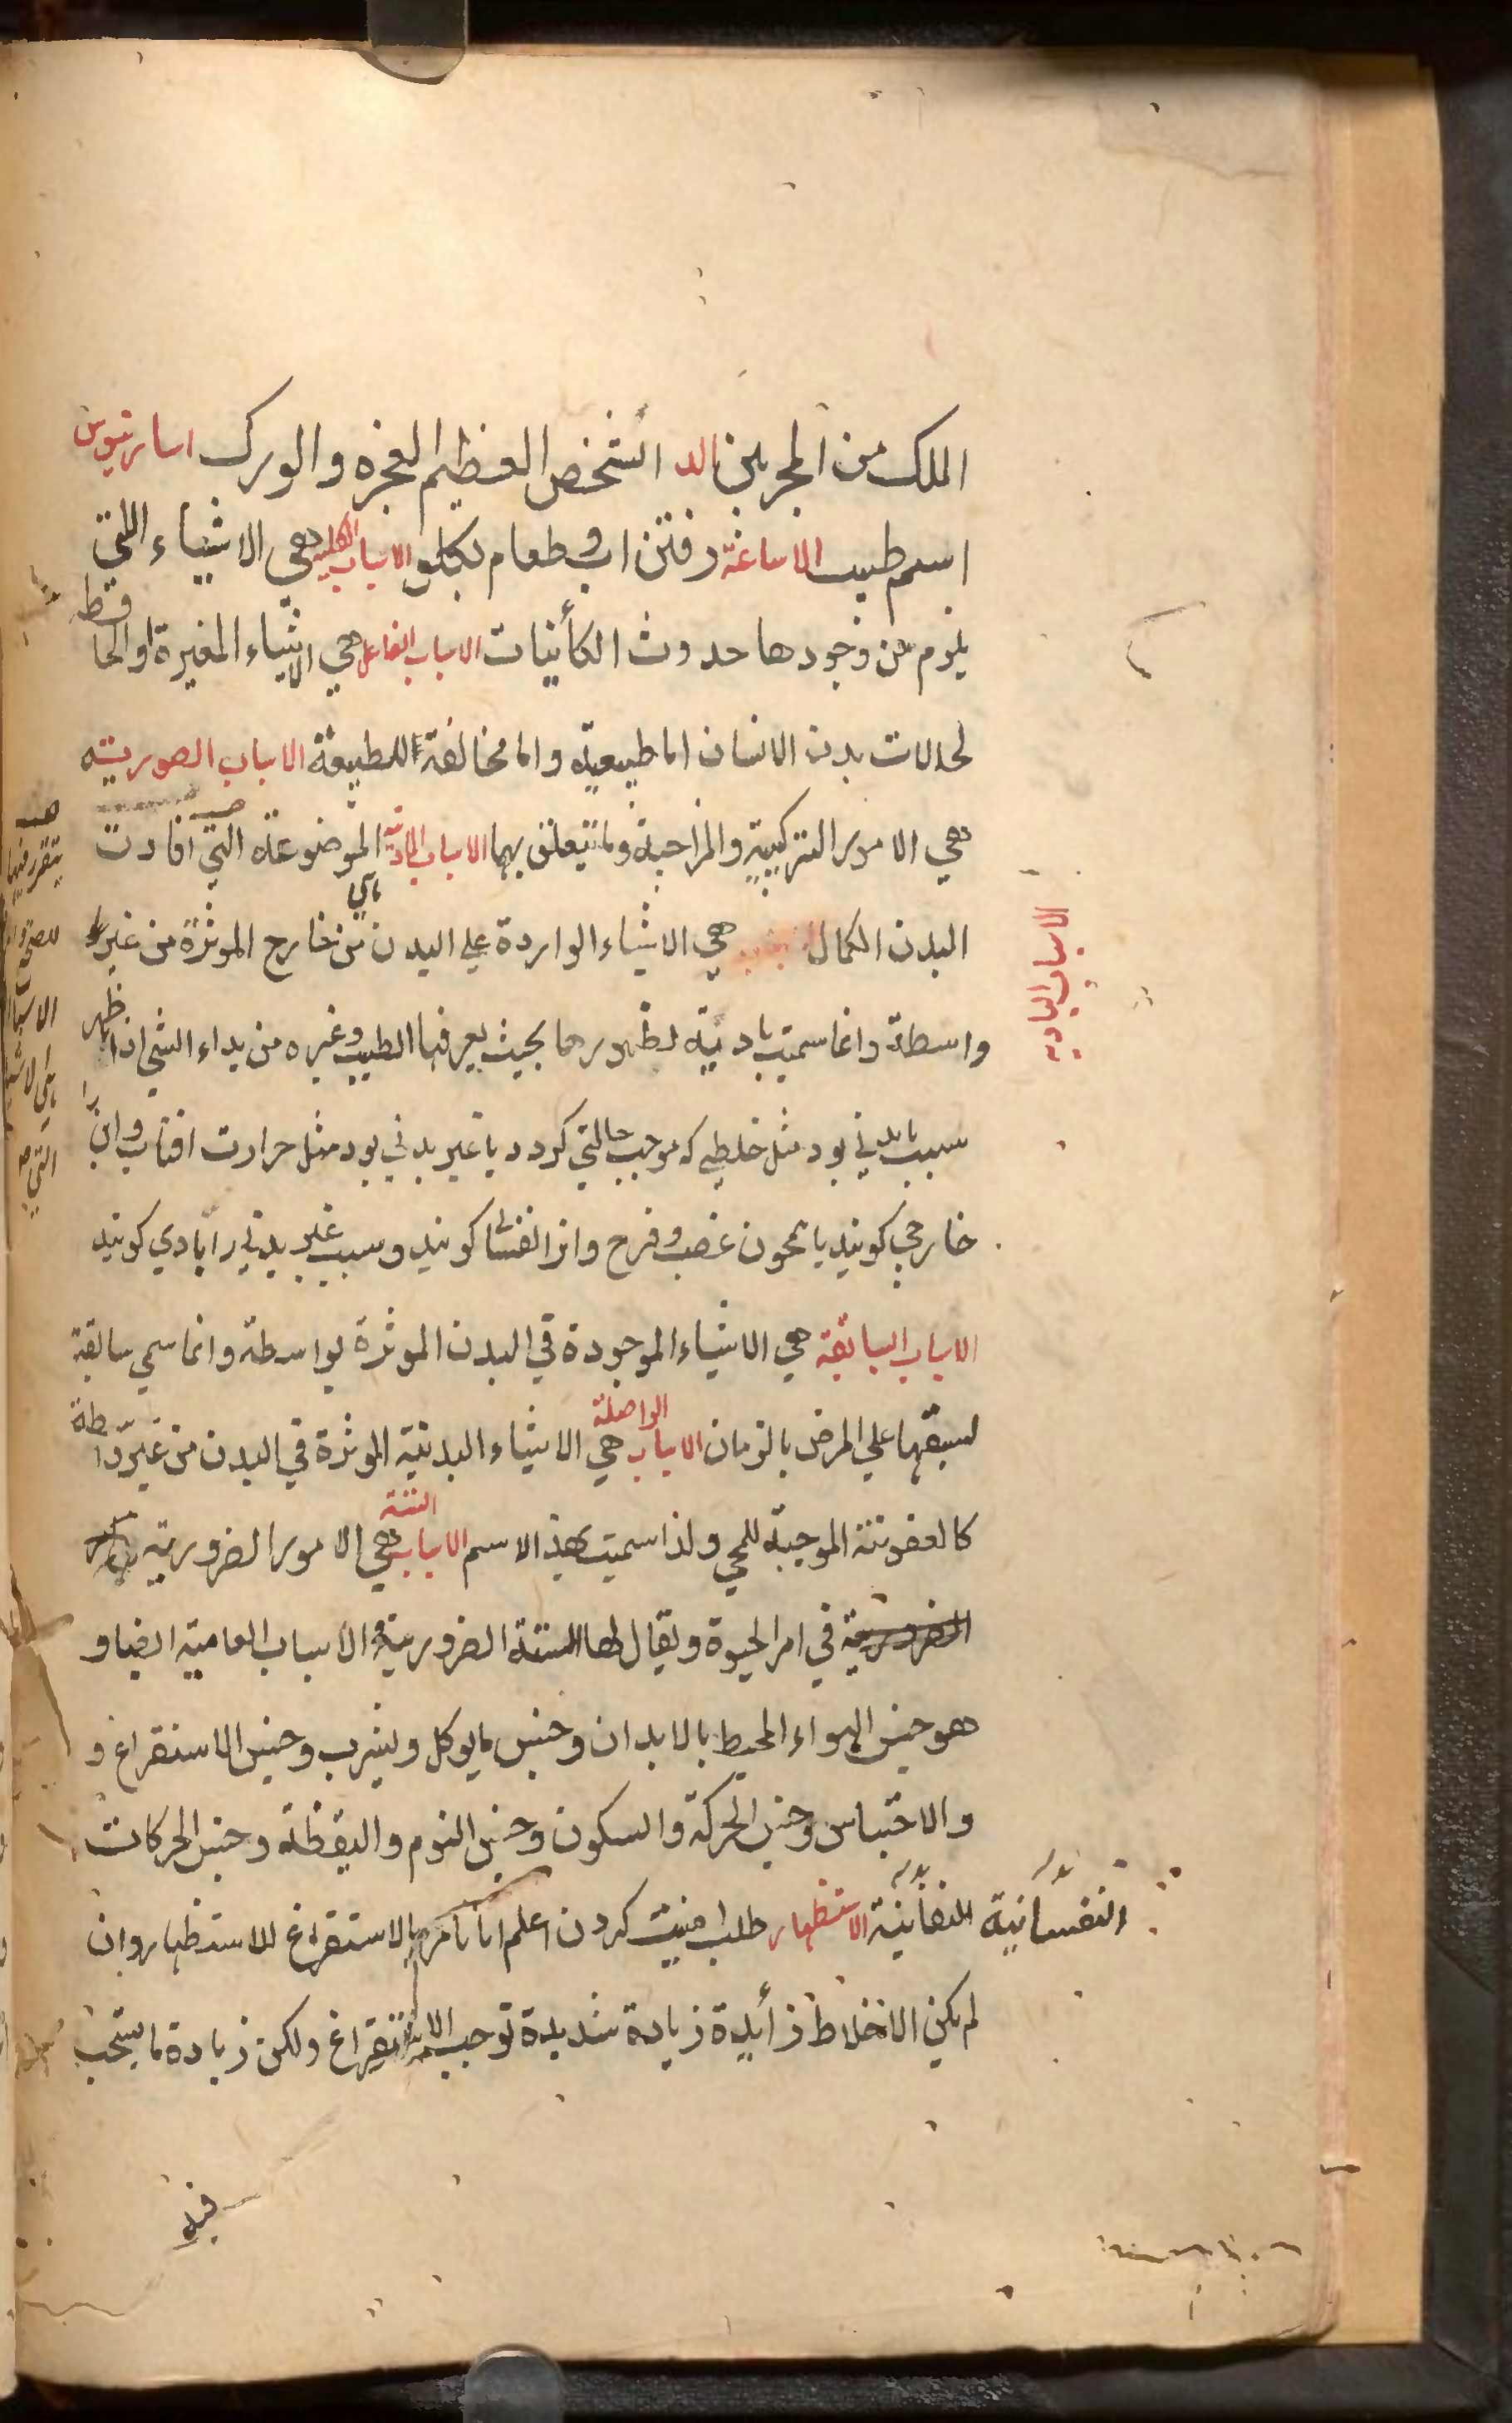 الملك من المجربين الد الشخص العظيم العجزه والورك اسارتيوس
اسم طبيب الاساغة رفتن اب وطعام بكلو الاسباب الكلية هي الاشياء اللتي
يلزم من وجودها حدوث الكأينات الاسباب الفاعل هي الاشياء المغيرة او الحا فظه
لحالات بدن الانسان اما طبيعية واما مخالفة للطبيعة الاسباب الصوريته
هي الامور التركيبية والمزاحية وما تتعلق بهما الاسباب المادية الموضوعة التي افادت
البدن الكمال هي الاشياء الواردة علي البدن من خارج الموثرة من غير
واسطة وانما سميت بادئية لظهورها بحيث يعرفها الطبيب وغيره من بداء الشي اذا ظهر
سبب يا بدني بود مثل خلطي كه موجب حالتي كردد يا غير بدني بود مثل حرارت افتاب وان را
خارجي كويند يا همچون غضب وفرح وانرا نفسا كويند وسبب غير بدني را بادي كويند
الاسباب السابقة هي الاشياء الموجودة في البدن الموثرة بواسطة وانما سمي سابقة
لسبقها علي المرض بالزمان الاسباب الواصلة هي الاشياء البدنية الموثرة في البدن من غير واسطة
كالعفونته الموجبة للحمي ولذا سميت بهذ الاسم الاسباب الستة هي الامور الضرورية
الضرورية في امر الحيوة ويقال لها الستة الضرورية والاسباب العامية ايضا و
هو جنس الهواء المحيط بالابدان وجنس ما يوكل ويشرب وجنس الاستفراغ و
والاحتباس وجنس الحركة والسكون وجنس النوم واليقظة وجنس الحركات
النفسانية النفسانية الاستظهار طلب امنيت كردن اعلم انا نأمر بالاستفراغ للاستظهار وان
لم يكن الاخلاط زأيدة زيادة شديدة توجب الاستفراغ ولكن زيادة ما يستحب
فيه
الاسباب البادية